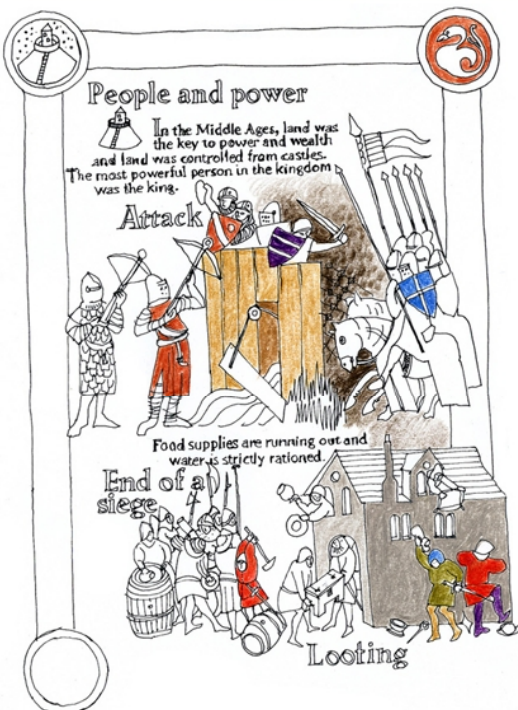 People and power
In the Middle Ages, land was
the key to power and wealth
and land was controlled from castles.
The most powerful person in the kingdom
was the king.
Attack
Food supplies are running out and
water is strictly rationed.
End of a
siege
Looting